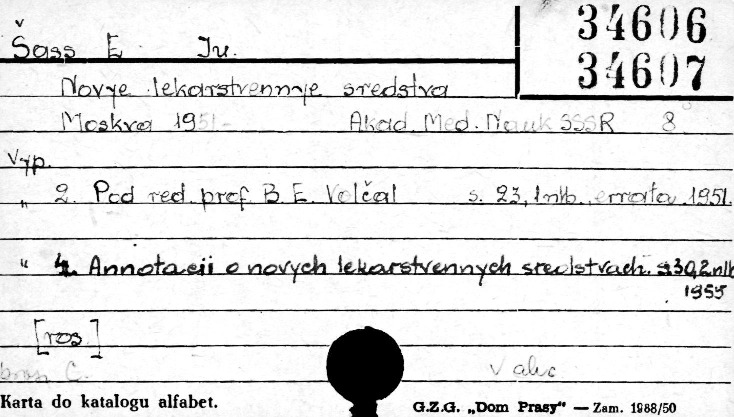 34606
34607
Šass E. Ju.
Novye lekarstvennye sredstva
Moskva 1951- Akad. Med. Nauk SSSR 8°
Vyp.
„ 2. Pod red. prof. B. E. Volčal s. 23, 1 nlb., errata 1951.
„ 4. Annotacii o novych lekarstvennych sredstvach. s. 30, 2 nlb
1955
[ros.]
C.
Karta do katalogu alfabet.
G.Z.G. „Dom Prasy” — Zam. 1988/50